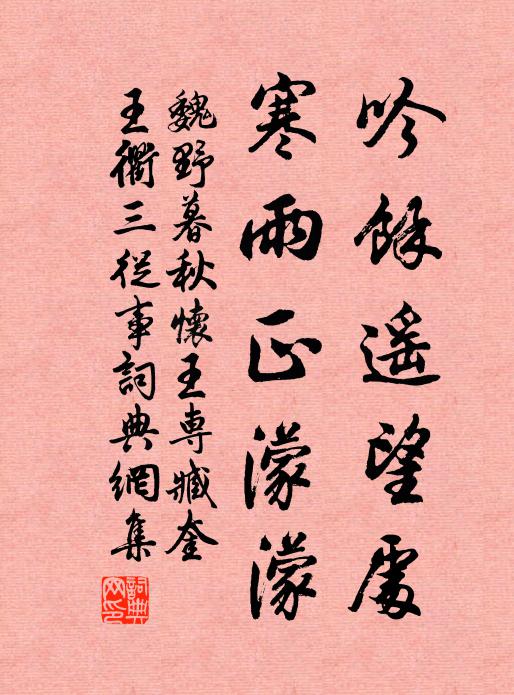 吟餘遥望處
寒雨正濛濛
魏野暮秋懷王専臧奎
王衢三從事詞典網集
詞典网印